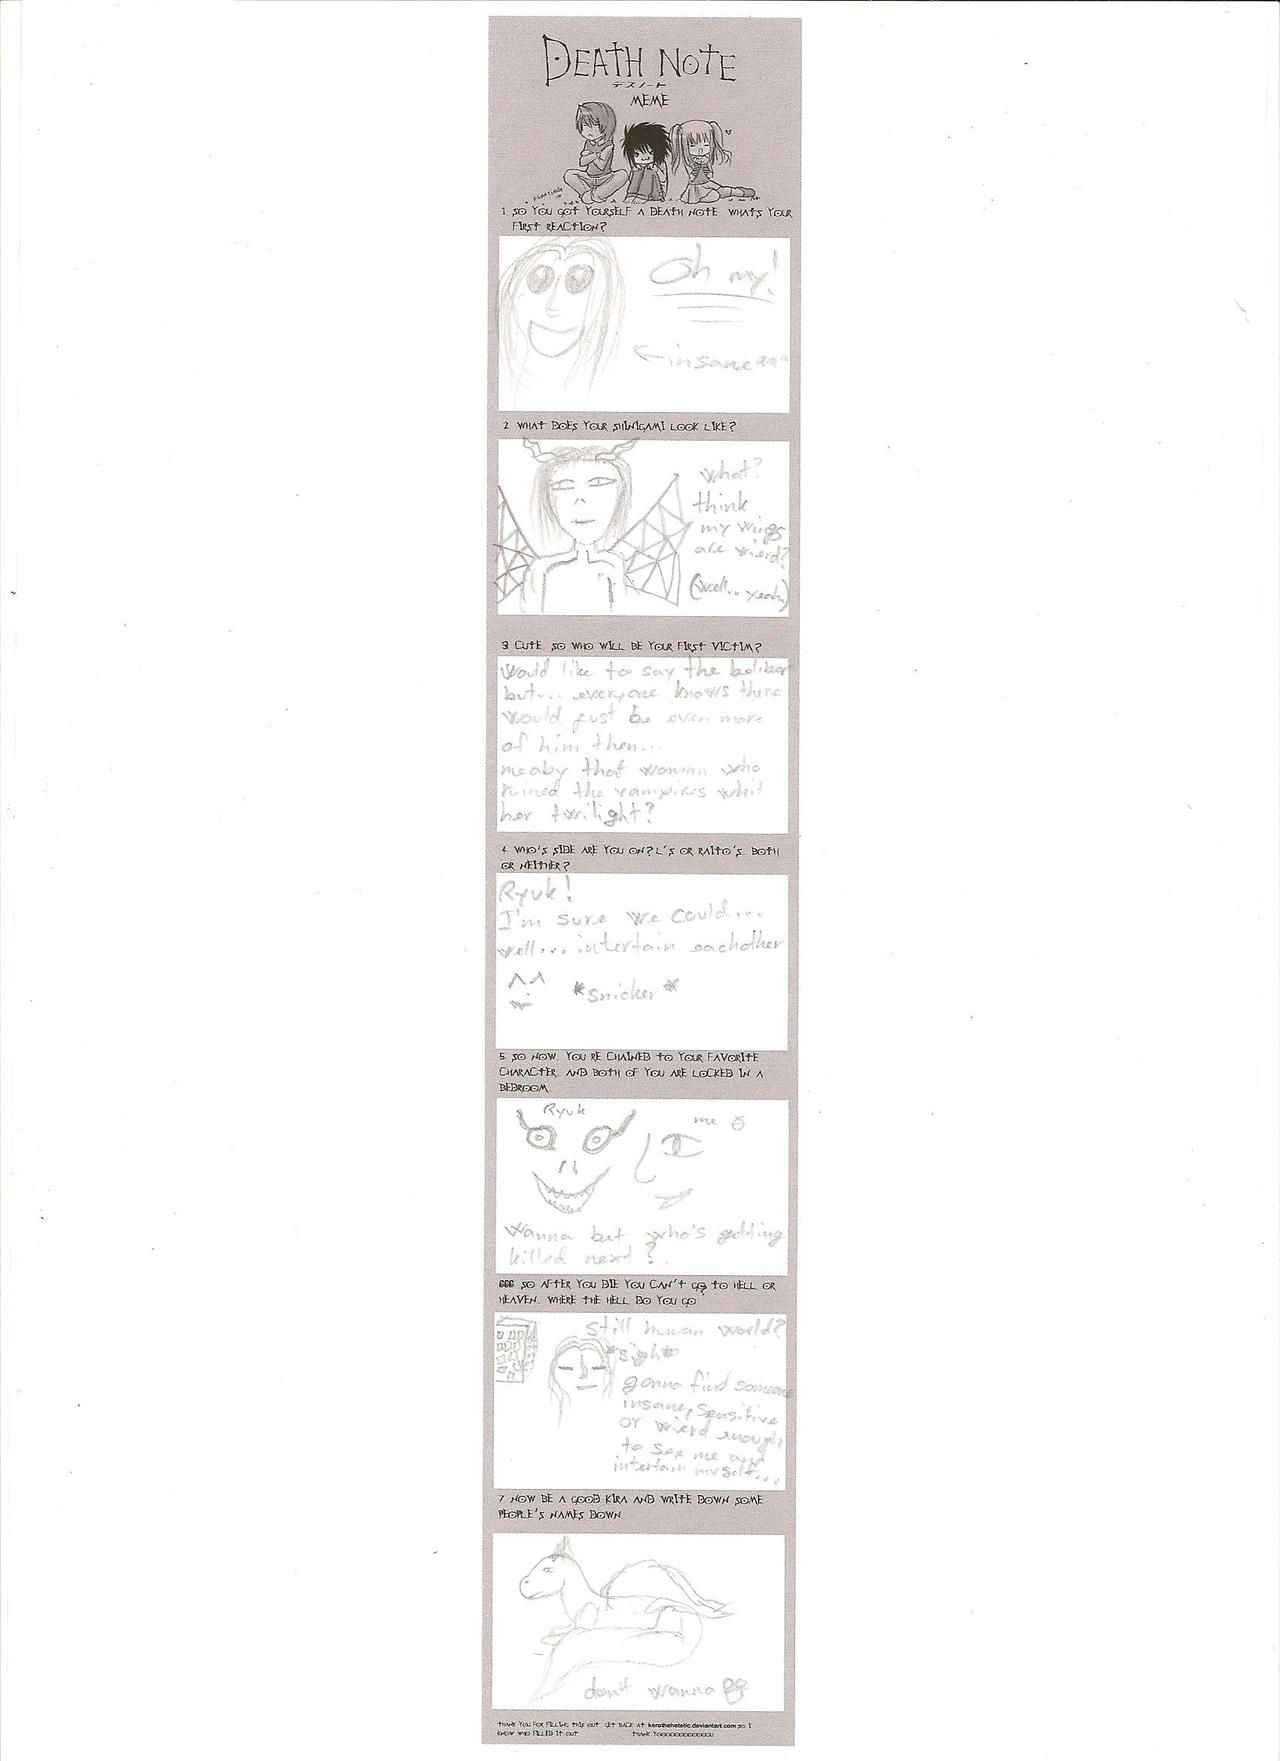 DEATH NOTE
デスノート
MEME
1. SO YOU GOT YOURSELF A DEATH NOTE. WHATS YOUR
FIRST REACTION?
Oh my!
insane
2. WHAT DOES YOUR SHINIGAMI LOOK LIKE?
what?
think
my wings
are wierd?
(well... yeah)
3 CUTE. SO WHO WILL BE YOUR FIRST VICTIM?
would like to say the beliber
but... everyone knows there
would just be even more
of him then...
meaby that woman who
ruined the vampires whit
her twilight?
4. WHO'S SIDE ARE YOU ON? L'S OR RAITO'S. BOTH
OR NEITHER?
Ryuk!
I'm sure we could...
well... intertain eachother
^^
*snicker*
5. SO NOW. YOU'RE CHAINED TO YOUR FAVORITE
CHARACTER. AND BOTH OF YOU ARE LOCKED IN A
BEDROOM.
Ryuk
me
Wanna bet who's getting
killed next?
666 SO AFTER YOU DIE YOU CAN'T GO TO HELL OR
HEAVEN. WHERE THE HELL DO YOU GO?
still human world?
*sigh*
gonna find someone
insane, sensitive
or wierd enough
to see me and
intertain myself...
7. NOW BE A GOOD KIRA AND WRITE DOWN SOME
PEOPLE'S NAMES DOWN
don't wanna
THANK YOU FOR FILLING THIS OUT. GET BACK AT kerothehatetic.deviantart.com SO I
KNOW WHO FILLED IT OUT